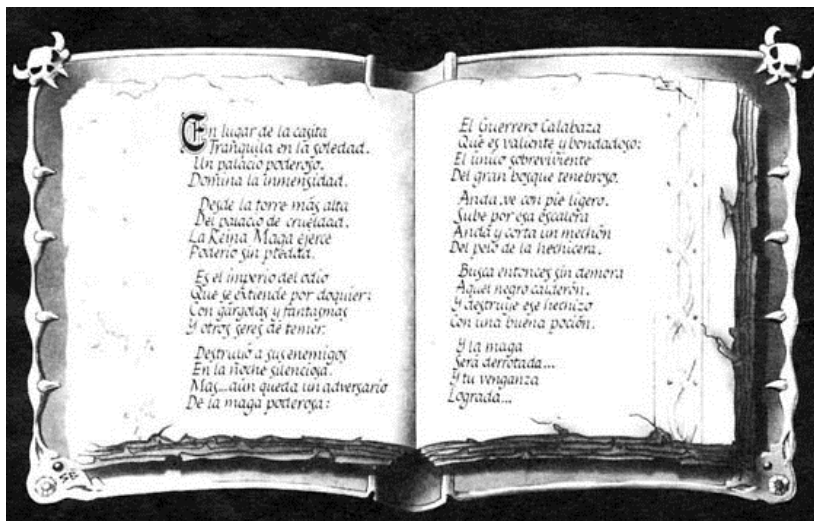 En lugar de la casita
Tranquila en la soledad.
Un palacio poderoso.
Domina la inmensidad.
Desde la torre más alta
Del palacio de crueldad.
La Reina Maga ejerce
Poderío sin piedda.
Es el imperio del odio
Que se extiende por doquier:
Con gárgolas y fantasmas
Y otros seres de temer.
Destruió a sus enemigos
En la noche silenciosa.
Mas...aún queda un adversario
De la maga poderosa:
El Guerrero Calabaza
Que es valiente y bondadoso:
El único sobreviviente
Del gran bosque tenebroso.
Anda, ve con pie ligero.
Sube por esa escalera
Anda y corta un mechón
Del pelo de la hechicera.
Busca entonces sin demora
Aquel negro calderón.
Y destruye ese hechizo
Con una buena poción.
Y la maga
Será derrotada...
Y tu venganza
Lograda...
SB